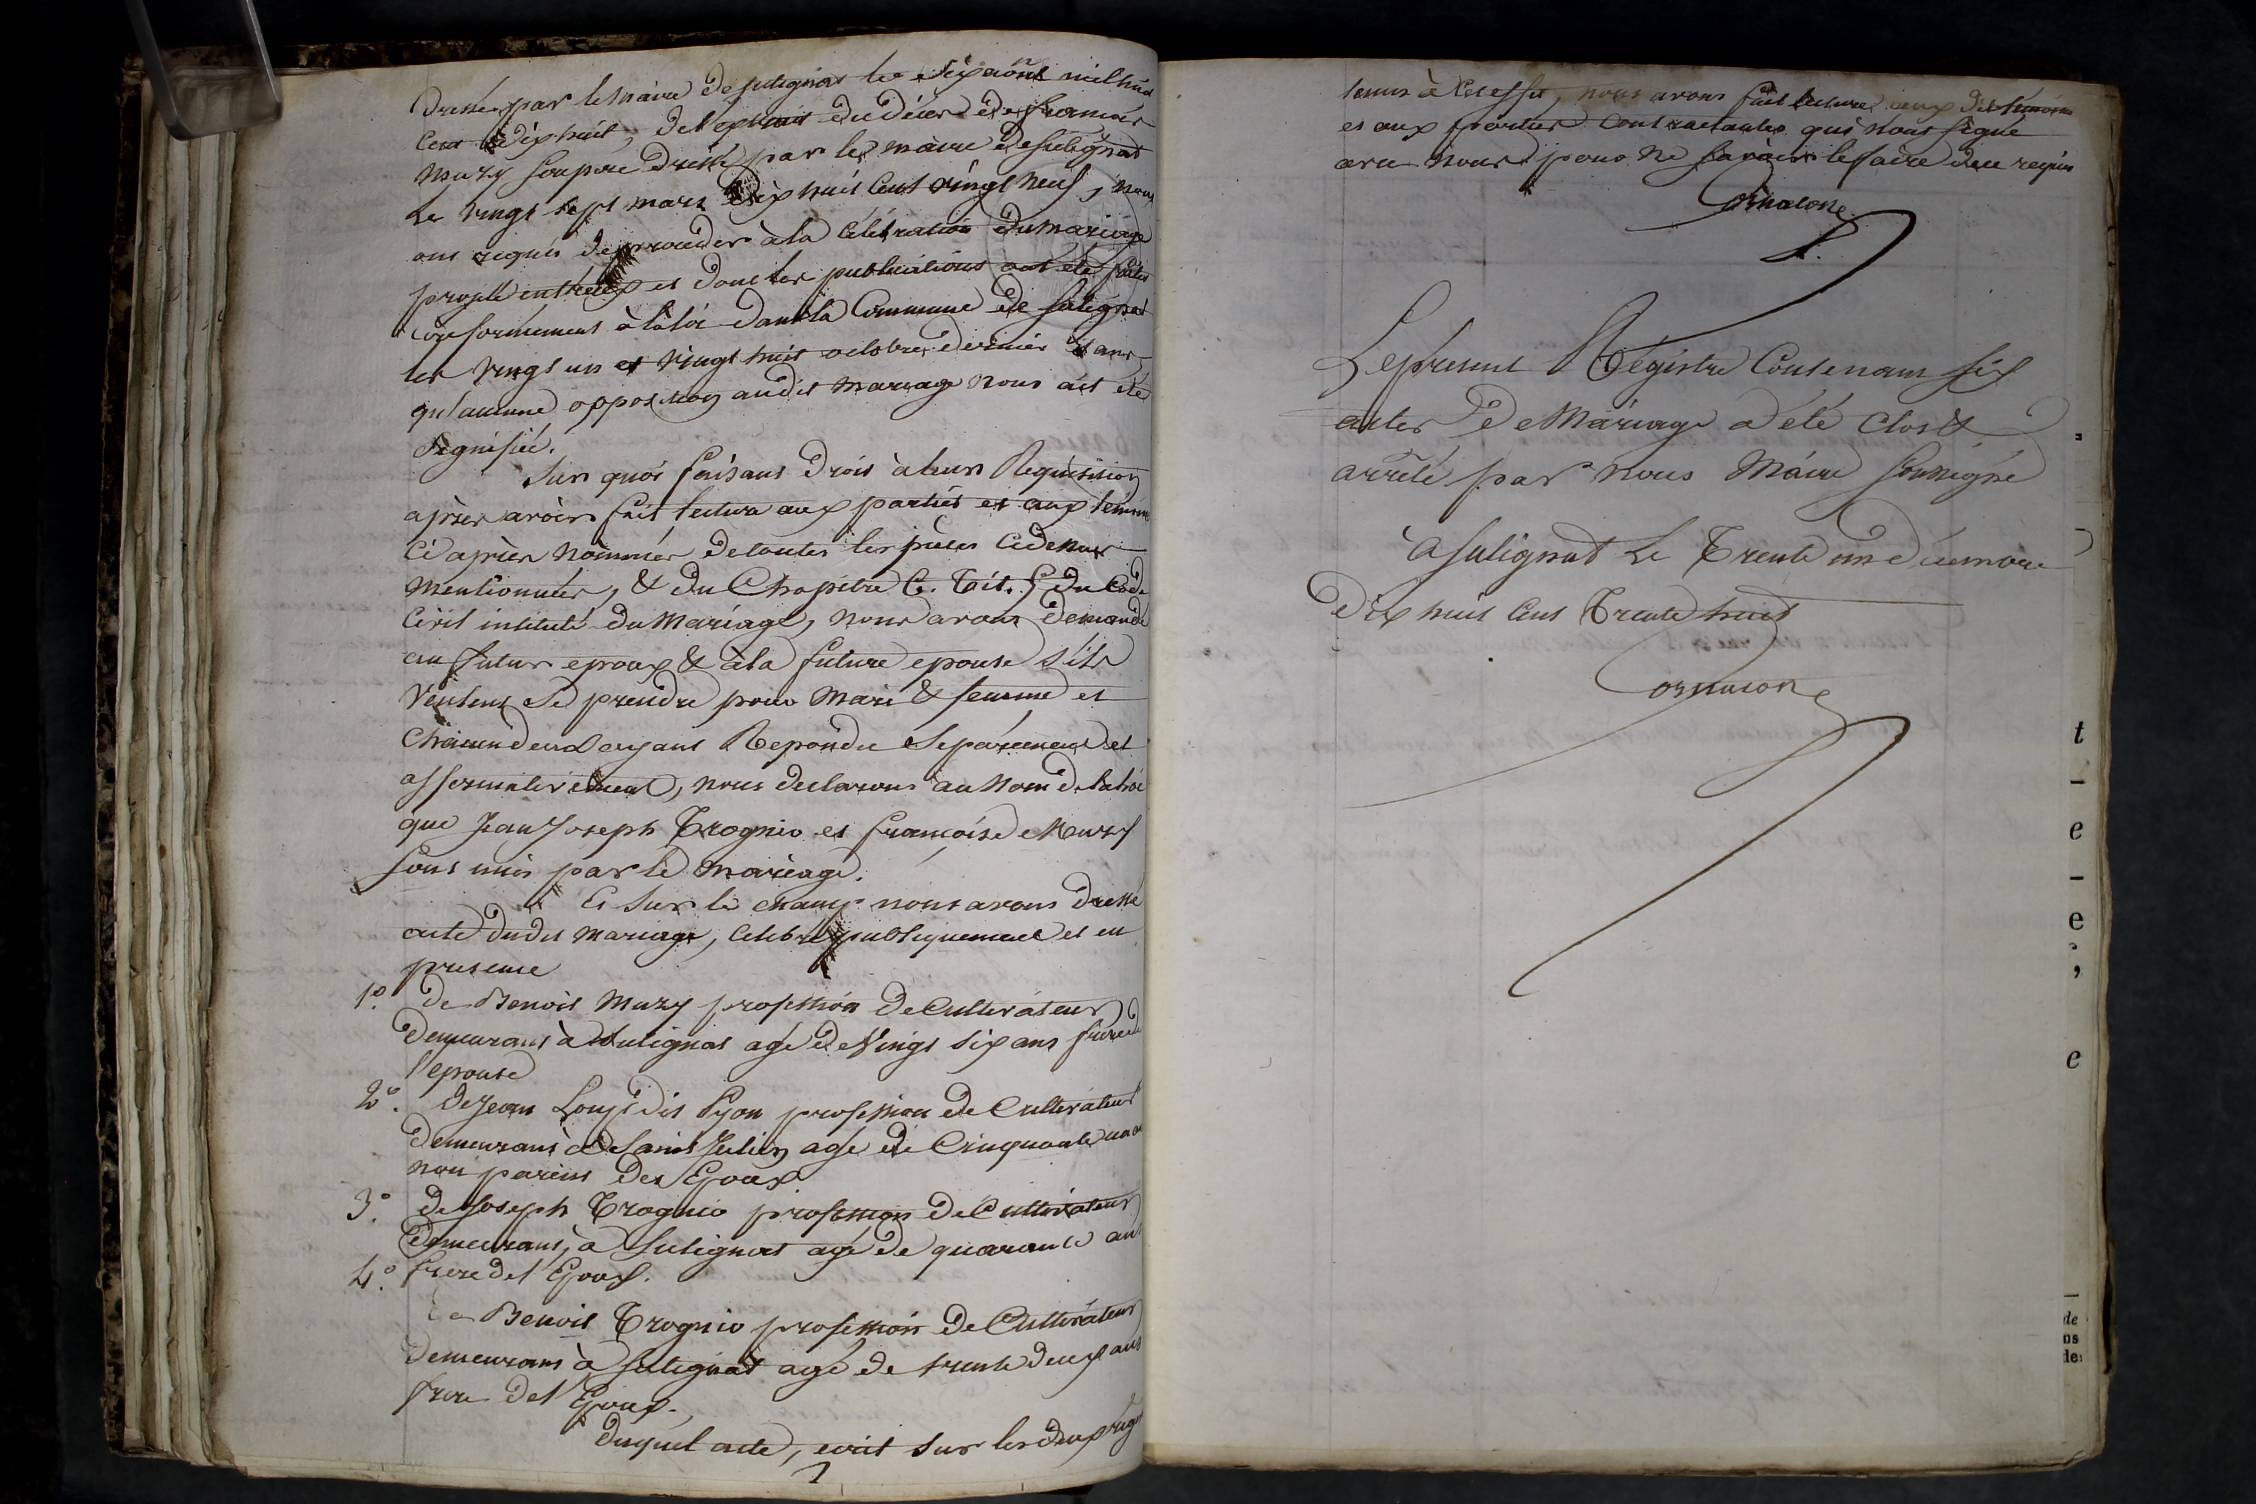 Dressé par le Maire de Sulignat le six août mil huit
Cent dixhuit, de l'extrait du Décès de françois
Muzy son père Dressé par le maire de Sulignat
Le vingt sept mars dix huit Cent vingt neuf, nous
ont requis de proceder à la Célébration du Mariage
projetté entr'eux et dont les publications ont été faites
conformement à la loi dans la Commune de Sulignat
les vingt un et vingt huit octobre dernier sans
qu'aucune opposition audit mariage nous ait été
Signifiée.
Sur quoi faisant Droit à leur Requisition
après avoir fait lecture aux parties et aux temoins
Ci après nommés de toutes les pièces Cidessus
Mentionnées, & du Chapitre 6. Tit. 5 du Code
Civil intitulé du Mariage, nous avons demandé
au futur epoux & à la future epouse s'ils
Veulent Se prendre pour Mari & femme et
Chacun d'eux ayant Repondu Séparement et
affirmativement, nous declarons au Nom de la loi
que Jean Joseph Trognio et françoise Muzy
Sont unis par le Mariage.
Et Sur le champ nous avons dressé
acte dudit mariage, Celebré publiquement et en
presence
1º. de Benoit Muzy profession de Cultivateur
demeurant à Sulignat agé de Vingt six ans frère de
l'epouse
2º. de Jean Loup dit Lyon profession de Cultivateur
demeurant à Saint Julien agé de Cinquante un an
non parens des Epoux
3º. de Joseph Trognio profession de Cultivateur
demeurant, à Sulignat agé de quarante ans
frere de l'Epoux.
4º. de Benoit Trognio profession de Cultivateur
demeurant à Sulignat agé de trente deux ans
frere de l'Epoux.
Duquel acte, ecrit sur les deux rég
tenus à Cet effet, nous avons fait lecture aux dits temoins
et aux parties contractantes qui n'ont signé
avec nous pour ne savoir le faire de ce requis
Cornaton
Le present Régistre Contenant six
actes de Mariage a été Clos &
arrêté par nous Maire soussigné
à Sulignat Le Trente un décembre
Dix huit Cent Trente huit
Cornaton
t
e
e
,
e
de
ns
de